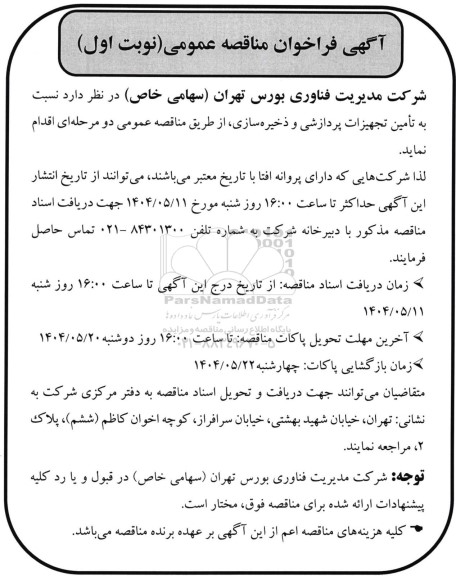 آگهی فراخوان مناقصه عمومی(نوبت اول)
شرکت مدیریت فناوری بورس تهران (سهامی خاص) در نظر دارد نسبت
به تأمین تجهیزات پردازشی و ذخیره‌سازی، از طریق مناقصه عمومی دو مرحله‌ای اقدام
نماید.
لذا شرکت‌هایی که دارای پروانه افتا با تاریخ معتبر می‌باشند، می‌توانند از تاریخ انتشار
این آگهی حداکثر تا ساعت ۱۶:۰۰ روز شنبه مورخ ۱۴۰۴/۰۵/۱۱ جهت دریافت اسناد
مناقصه مذکور با دبیرخانه شرکت به شماره تلفن ۸۴۳۰۱۳۰۰ -۰۲۱ تماس حاصل
فرمایند.
زمان دریافت اسناد مناقصه: از تاریخ درج این آگهی تا ساعت ۱۶:۰۰ روز شنبه
ParsNamadData
۱۴۰۴/۰۵/۱۱
مرکز فرآوری اطلاعات پارس نماد داده ها
پایگاه اطلاع رسانی مناقصه و مزایده
آخرین مهلت تحویل پاکات مناقصه: تا ساعت ۱۶:۰۰ روز دوشنبه ۱۴۰۴/۰۵/۲۰
زمان بازگشایی پاکات: چهارشنبه ۱۴۰۴/۰۵/۲۲
متقاضیان می‌توانند جهت دریافت و تحویل اسناد مناقصه به دفتر مرکزی شرکت به
نشانی: تهران، خیابان شهید بهشتی، خیابان سرافراز، کوچه اخوان کاظم (ششم)، پلاک
۲، مراجعه نمایند.
توجه: شرکت مدیریت فناوری بورس تهران (سهامی خاص) در قبول و یا رد کلیه
پیشنهادات ارائه شده برای مناقصه فوق، مختار است.
کلیه هزینه‌های مناقصه اعم از این آگهی بر عهده برنده مناقصه می‌باشد.